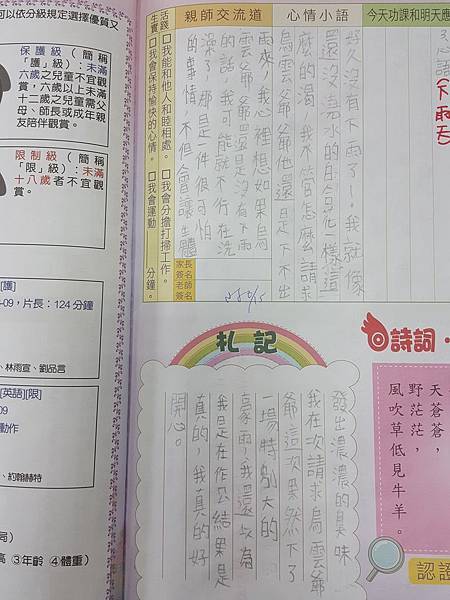 可以依分級規定選擇優質又
保護級(簡稱
「護」級):未滿
六歲之兒童不宜觀
賞,六歲以上未滿
十二歲之兒童需父
母、師長或成年親
友陪伴觀賞。
限制級(簡稱
「限」級):未滿
十八歲者不宜觀
賞。
[護]
-09,片長:124分鐘
、林雨宣、劉品言
[英語][限]
09
動作
、約翰赫特
高 ③年齡 ④體重)
今天功課和明天應
心情小語
親師交流道
心語
(下雨天)
好久沒有下雨了。我就像
還沒澆水的白合花一樣這
麼的渴,我不管怎麼請求
烏雲爺爺他還是下不出
雨來,我心裡想如果烏
雲爺爺還是沒有下雨
的話,我可能就不行在洗
澡了,那是一件很可怕
的事情,不但會讓生體
家長簽名
老師簽名
生活實踐
□我能和他人和睦相處。 □我會分擔打掃工作。
□我會保持愉快的心情。 □我會運動 分鐘。
札記
發出濃濃的臭味
我在次請求烏雲爺
爺這次果然下了
一場特別大的
豪雨,我還以為
我是在作公結果是
真的,我真的好
開心。
詩詞·
天蒼蒼,
野茫茫,
風吹草低見牛羊。
認證